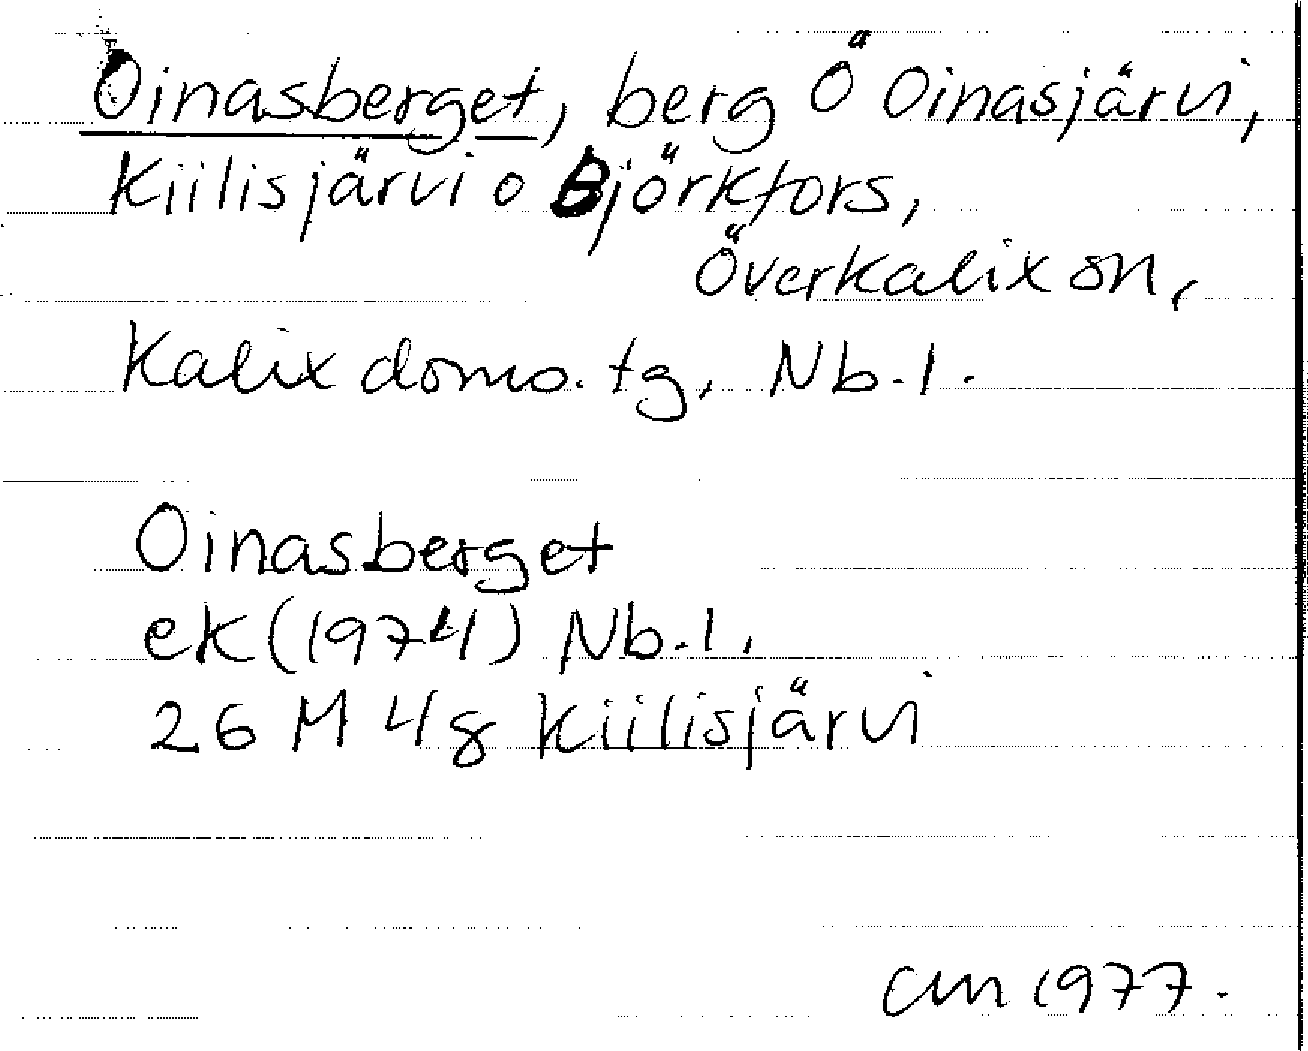 Oinasberget, berg Ö Oinasjärvi,
Kiilisjärvi o Björkfors,
Överkalix sn,
Kalix doms. tg, Nb. l.
Oinasberget
ek (1974) Nb. l.
26 M 4g Kiilisjärvi
cm 1977.